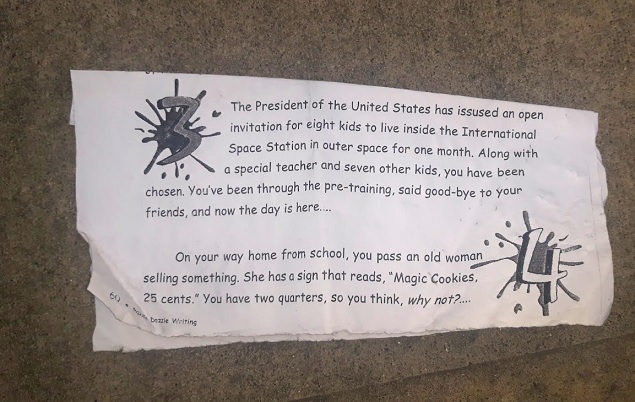 3
The President of the United States has issused an open
invitation for eight kids to live inside the International
Space Station in outer space for one month. Along with
a special teacher and seven other kids, you have been
chosen. You've been through the pre-training, said good-bye to your
friends, and now the day is here....
4
On your way home from school, you pass an old woman
selling something. She has a sign that reads, "Magic Cookies,
25 cents." You have two quarters, so you think, why not?....
60 • Dazzle Writing